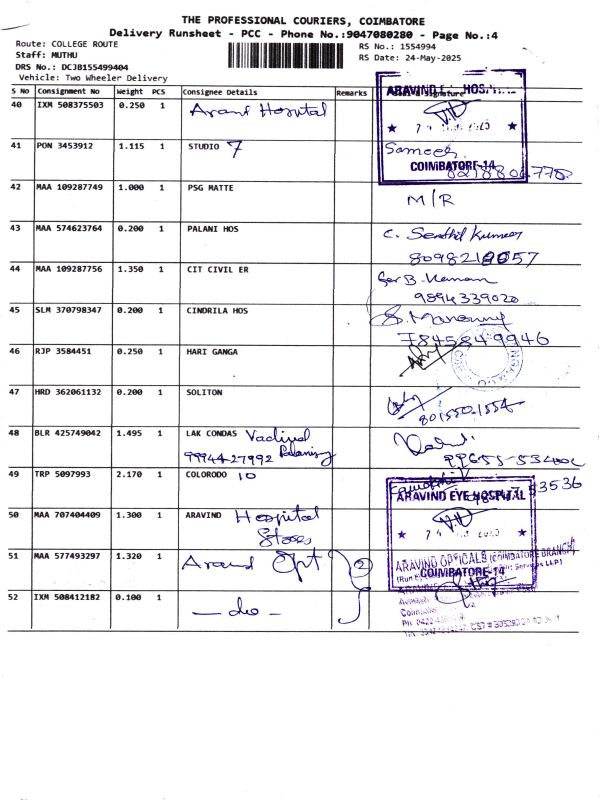 THE PROFESSIONAL COURIERS, COIMBATORE
Delivery Runsheet - PCC - Phone No.:9047080280 - Page No.:4
Route: COLLEGE ROUTE
Staff: MUTHU
DRS No.: DCJB155499404
Vehicle: Two Wheeler Delivery
RS No.: 1554994
RS Date: 24-May-2025
S No Consignment No Weight PCS Consignee Details Remarks
40 IXM 508375503 0.250 1 Aravi Hospital
ARAVIND EYE HOSPITAL
COIMBATORE-14
41 PON 3453912 1.115 1 STUDIO 7 Sameer
42 MAA 109287749 1.000 1 PSG MATTE M/R
43 MAA 574623764 0.200 1 PALANI HOS C. Senthil Kumar
8098218057
44 MAA 109287756 1.350 1 CIT CIVIL ER
9894339020
45 SLM 370798347 0.200 1 CINDRILA HOS
7845849946
46 RJP 3584451 0.250 1 HARI GANGA
47 HRD 362061132 0.200 1 SOLITON
801550-1554
48 BLR 425749042 1.495 1 LAK CONDAS
99944-27992
49 TRP 5097993 2.170 1 COLORODO 10
ARAVIND EYE HOSPITAL
50 MAA 707404409 1.300 1 ARAVIND Hospital
Stores
51 MAA 577493297 1.320 1 Aravind Opt
ARAVIND OPTICALS (COIMBATORE BRANCH)
COIMBATORE-14
52 IXM 508412182 0.100 1 — do —